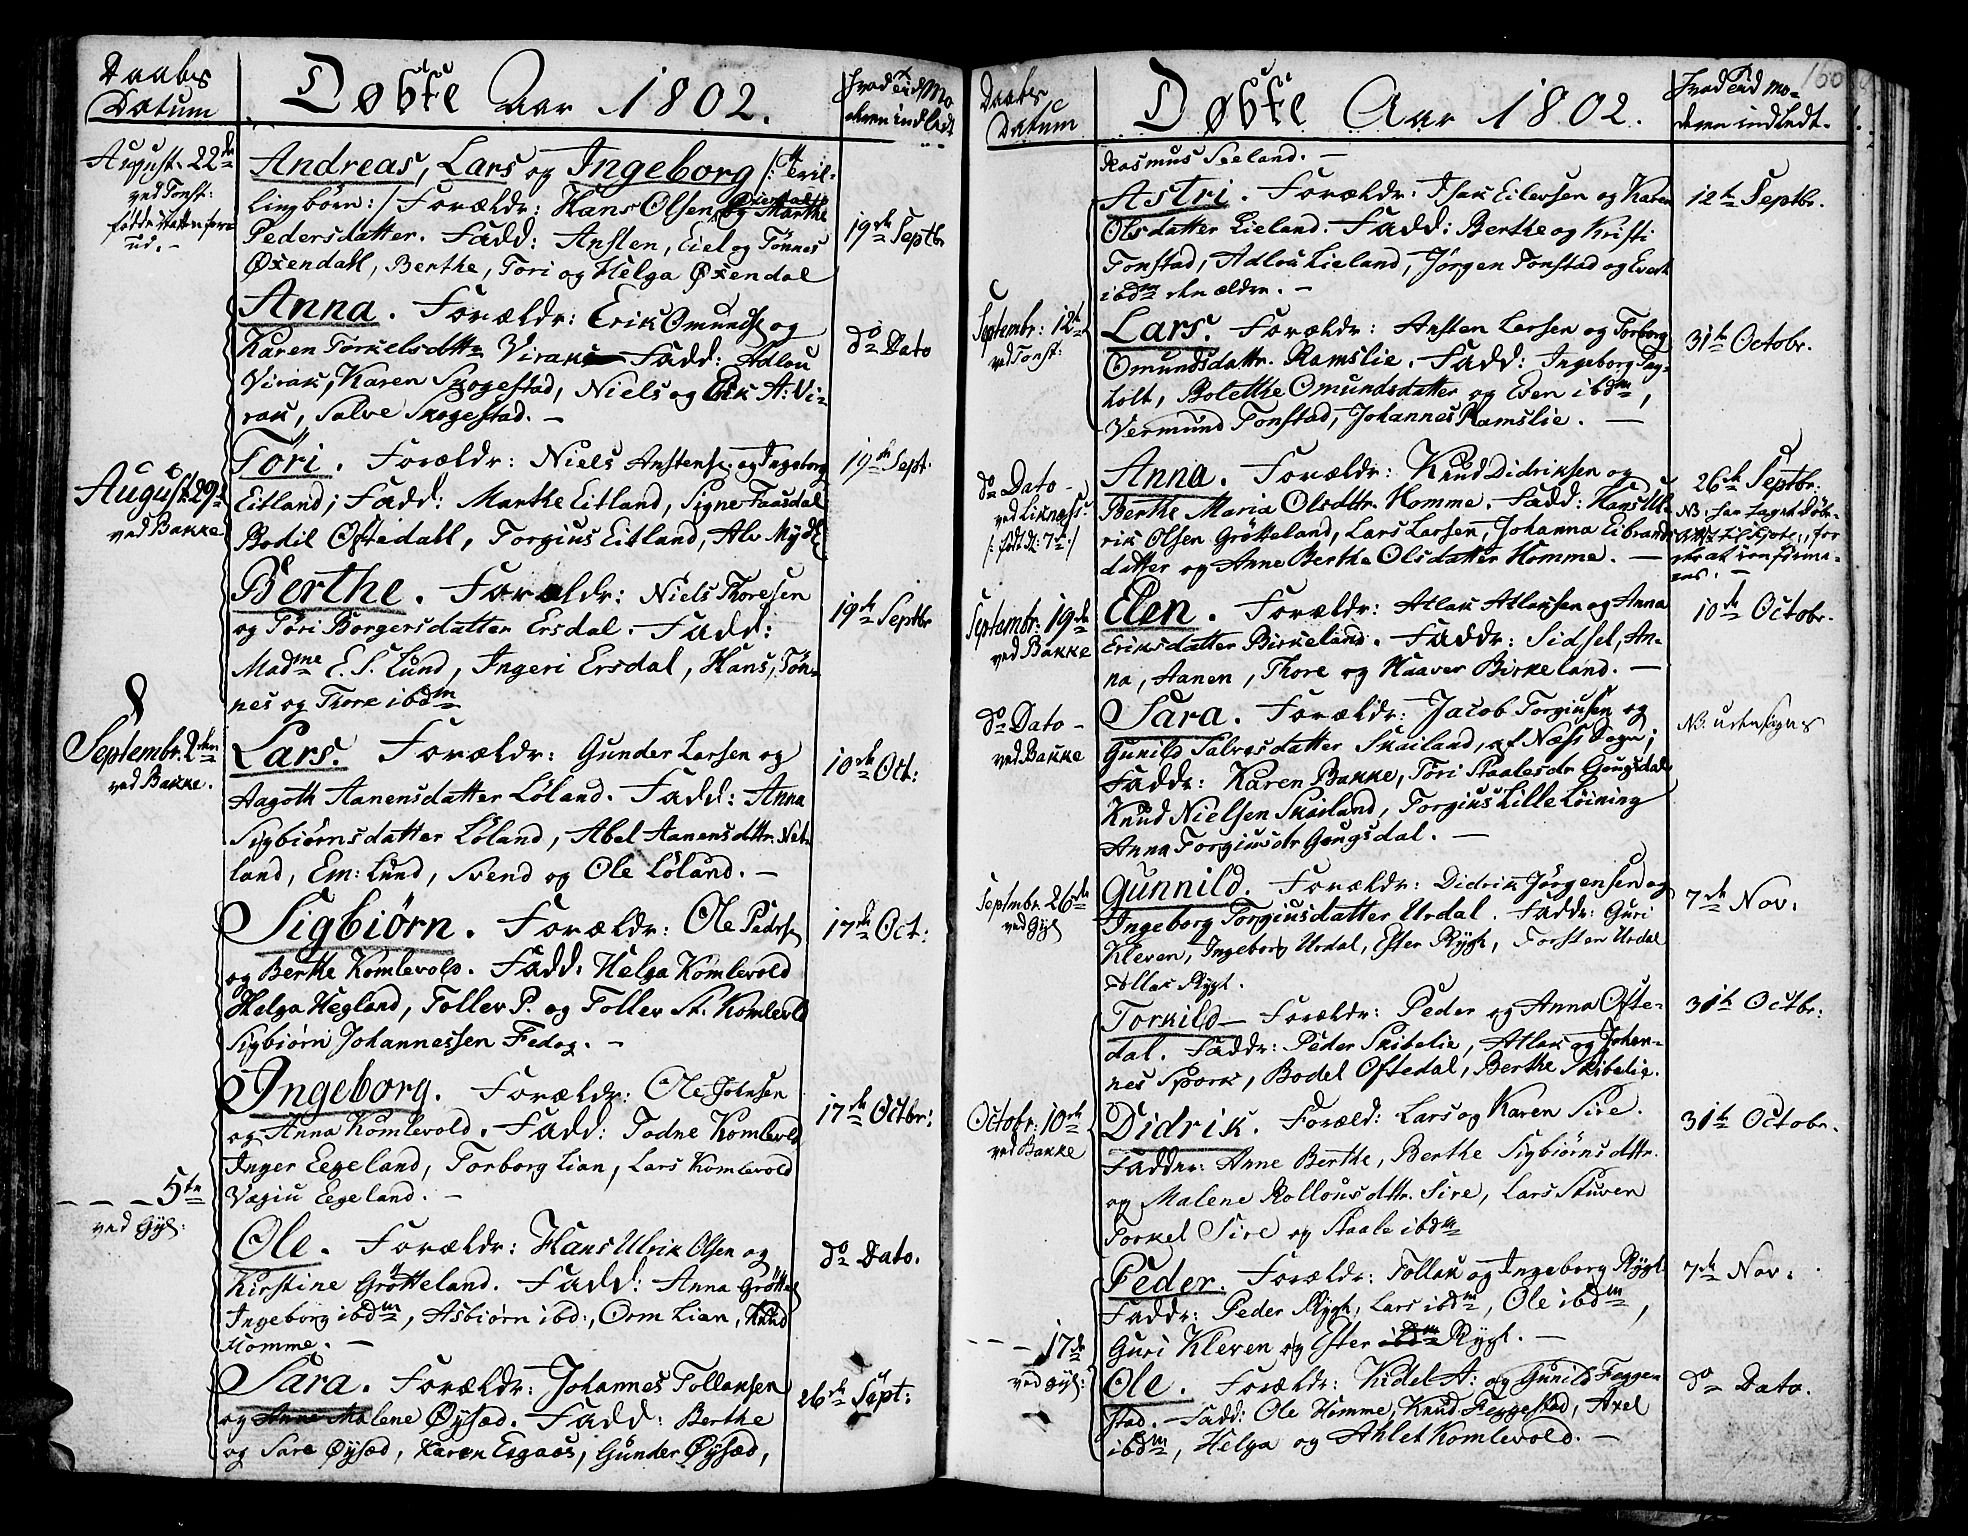 Daabs
Datum
Døbte Aar 1802.
Hvad Tid Mo-
deren indledt
August. 22de
ved Tonst:
født Natten forud.-
Andreas, Lars og Ingeborg /: Tril-
lingbørn:/ Forældr: Hans Olsen Øxendal og Marthe
Pedersdatter. Fadd: Ansten, Eiel og Tønnes
Øxendahl, Berthe, Tori og Helga Øxendal
19de Septbr
Anna. Forældr: Erik Omundse og
Karen Torkelsdttr Virak Fadd: Adlou
Virak, Karen Skogestad, Niels og Erik A: Vi-
rak, Salve Skogestad. -
do Dato
August 29de
ved Bakke
Töri. Forældr: Niels Anstense og Ingeborg
Eitland; Fadd: Marthe Eitland, Signe Faasdal
Bodil Oftedahl, Torgius Eitland, Alv Mydl
19de Sept:
Berthe. Forældr: Niels Thoresen
og Töri Borgersdatter Ersdal. Fadd:
Madme E. S. Lund, Ingeri Ersdal, Hans, Tön-
nes og Thore ibdm
19de Septbr
Septembr: 2den
ved Bakke.
Lars. Forældr: Gunder Larsen og
Aagoth Aanensdatter Löland. Fadd: Anna
Sigbiörnsdatter Löland, Abel Aanensdttr. Net-
land, Em: Lund, Svend og Ole Löland. -
10de Oct:
Sigbiørn. Forældr: Ole Pederse
og Berthe Komlevold. Fadd: Helga Komlevold
Helga Hegland, Tollev P. og Tollev St. Komlevold
Sigbiörn Johannessen Fedog. -
17de Oct:
Ingeborg. Forældr: Ole Johnsen
og Anna Komlevold. Fadd: Todne Komlevold
Inger Eegeland, Torborg Lian, Lars Komlevold
Vegiu Eegeland. -
17de Octbr:
- - - 5te
ved Gyl:
Ole. Forældr: Hans Ulrik Olsen og
Kirstine Grötteland. Fadd: Anna Gröttel
Ingeborg ibdm, Asbiørn ibd:, Orm Lian, Knud
Homme. -
do Dato.
Sara. Forældr: Johannes Tollaksen
og Anne Malene Øysæd. Fadd: Berthe
og Sara Øysæd, Karen Egaas, Gunder Øysæd,
26de Sept:
160
Daabs
Datum
Døbte Aar 1802.
Hvad Tid Mo-
deren indledt.
Rasmus Seeland. -
Astri. Forældr: Isak Eilevsen og Karen
Olsdatter Lieland. Fadd: Berthe og Kristi
Tonstad, Adlou Lieland, Jørgen Tonstad og Evert
ibdm den ældre. -
12te Septbr.
Septembr: 12te
ved Tonst:
Lars. Forældr: Ansten Larsen og Torborg
Omundsdattr. Ramslie. Fadd: Ingeborg
holt, Bolethe Omundsdatter og Even ibdm,
Vermund Tonstad, Johannes Ramslie. -
31te Octobr.
do Dato -
ved Liknæss
/: født d: 7de:/
Anna. Forældr: Knud Didriksen og
Berthe Maria Olsdttr. Homme. Fadd: Hans Ul-
rik Olsen Grötteland, Lars Larsen, Johanna Eibrands
datter og Anne Berthe Olsdatter Homme. -
26de Septbr:
Septembr: 19de
ved Bakke
Elen. Forældr: Atlak Atlaksen og Anna
Eriksdatter Birkeland. Faddr: Sidsel, An-
na, Aanen, Thore og Haaver Birkeland. -
10de Octobr.
do Dato -
ved Bakke
Sara. Forældr: Jacob Torgiusen og
Gunild Salvesdatter Skailand, af Næss Sogn;
Faddr: Karen Bakke, Töri Staalesdr Gougsdal
Knud Nielsen Skailand, Torgius Lille Löining
Anna Torgiusdr Gougsdal. -
Septembr. 26de
ved Gyl
Gunnild. Forældr: Didrik Jörgensen og
Ingeborg Torgiusdatter Urdal. Faddr: Guri
Kleven, Ingeborg Urdal, Ester Rygh, Torsten Urdal
Tollak Rygh.
7de Nov:
Torkild - Forældr: Peder og Anna Ofte-
dal. Faddr: Peder Skibelie, Atlak og Johan-
nes Spork, Bodel Oftedal, Berthe Skibelie.
31te Octbr:
Octobr: 10de
ved Bakke
Didrik. Foræld: Lars og Karen Sire.
Faddr: Anne Berthe, Berthe Sigbiörnsdttr.
og Malene Rollousdttr. Sire, Lars Stuven
Torkel Sire og Staale ibdm
31te Octobr.
Peder. Forældr: Tollak og Ingeborg Rygh
Faddr: Peder Rygh, Lars ibdm, Ole ibdm,
Guri Kleven og Ester ibdm Rygh. -
7de Nov:
- 17de
ved Gyl:
Ole. Forældr: Kidel A: og Gunild Feggen
stad. - Fadd: Ole Homme, Knud Feggestad, Axel
ibdm, Helga og Ahlet Komlevold. -
do Dato.